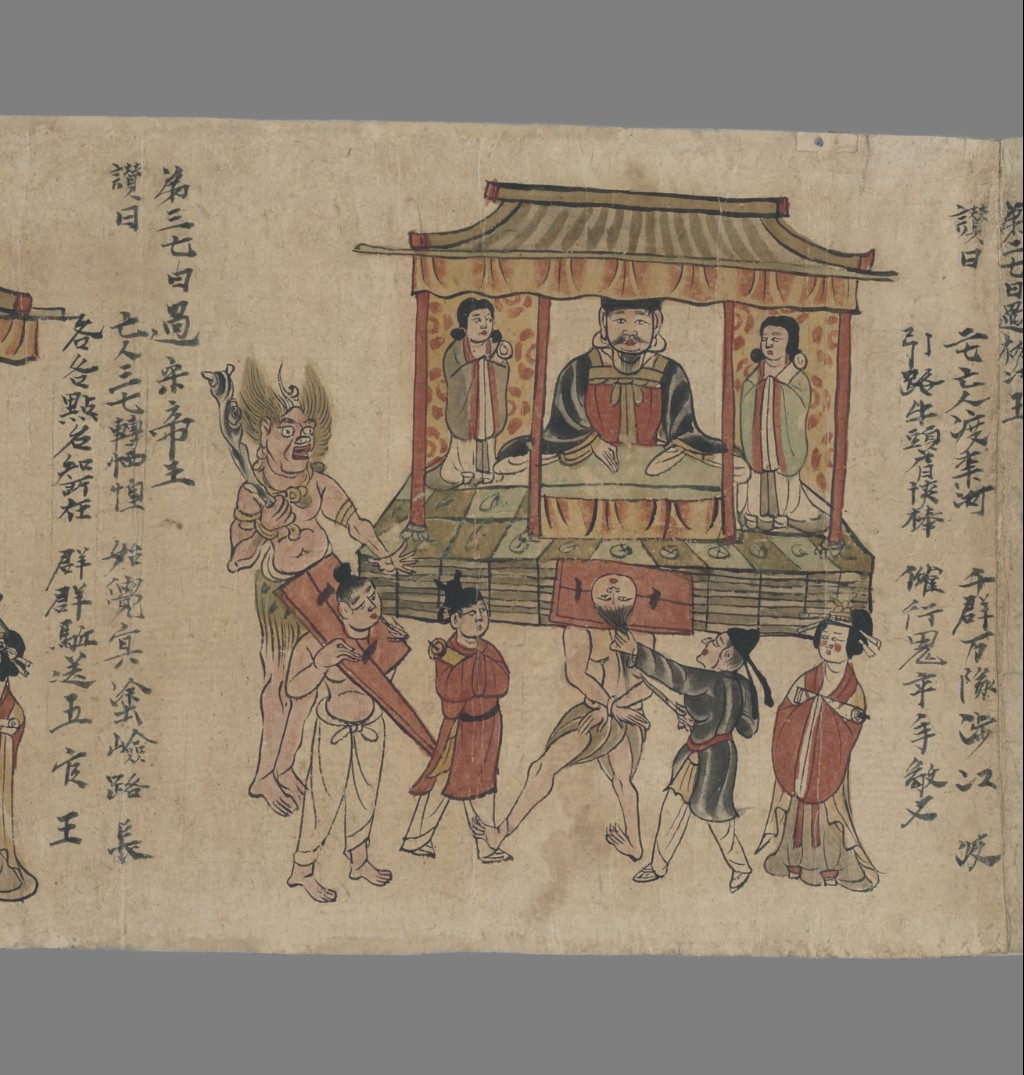 弟二七日過初江王
讚曰 二七亡人渡柰河 千群万隊涉江波
引路牛頭肩挾棒 催行鬼卒手擎叉
弟三七日過宋帝王
讚曰 亡人三七轉恓惶 始覺冥塗嶮路長
各各點名知所在 群群駈送五官王